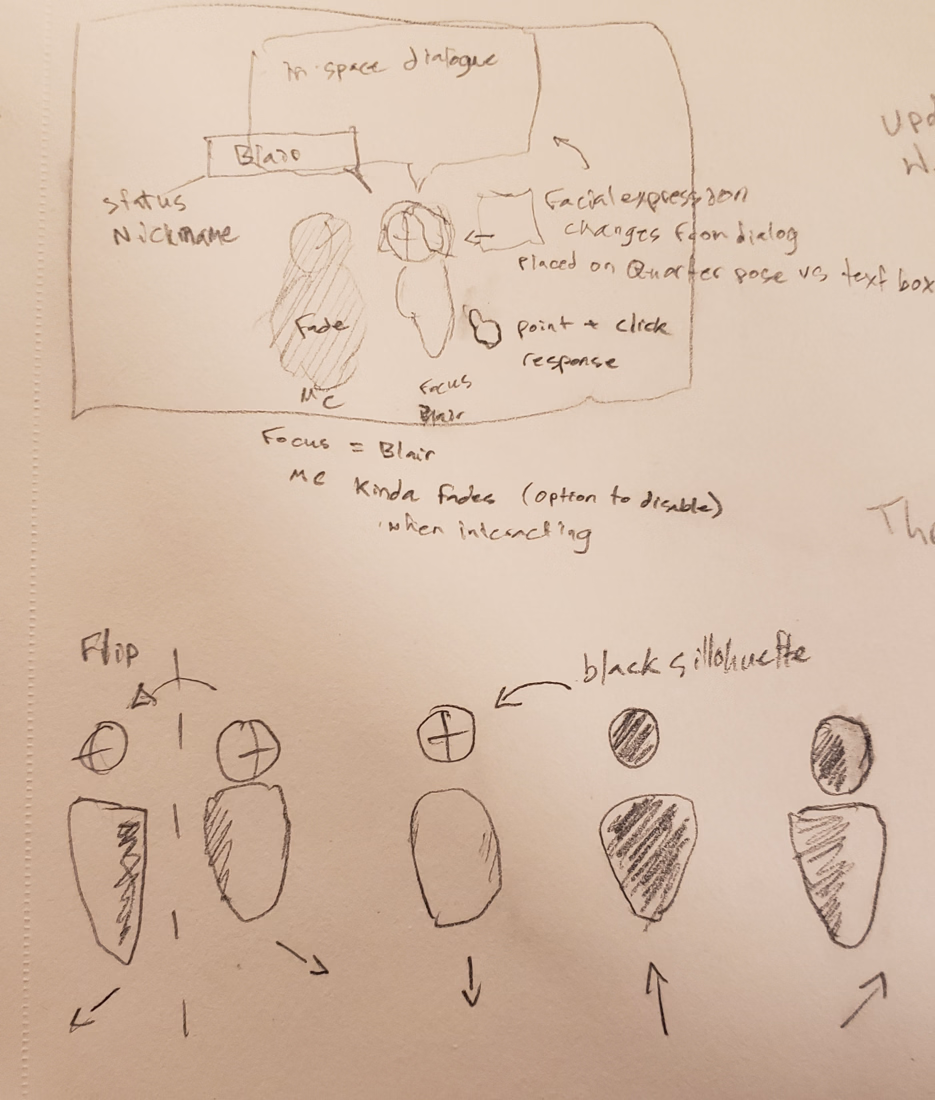 in-space dialogue
Blair
status
Nickname
Facial expression
changes from dialog
placed on Quarter pose vs text box
Fade
point + click
response
MC
Focus
Blair
Focus = Blair
MC Kinda fades (option to disable)
when interacting
Upd
W
The
Flip
black sillohuette